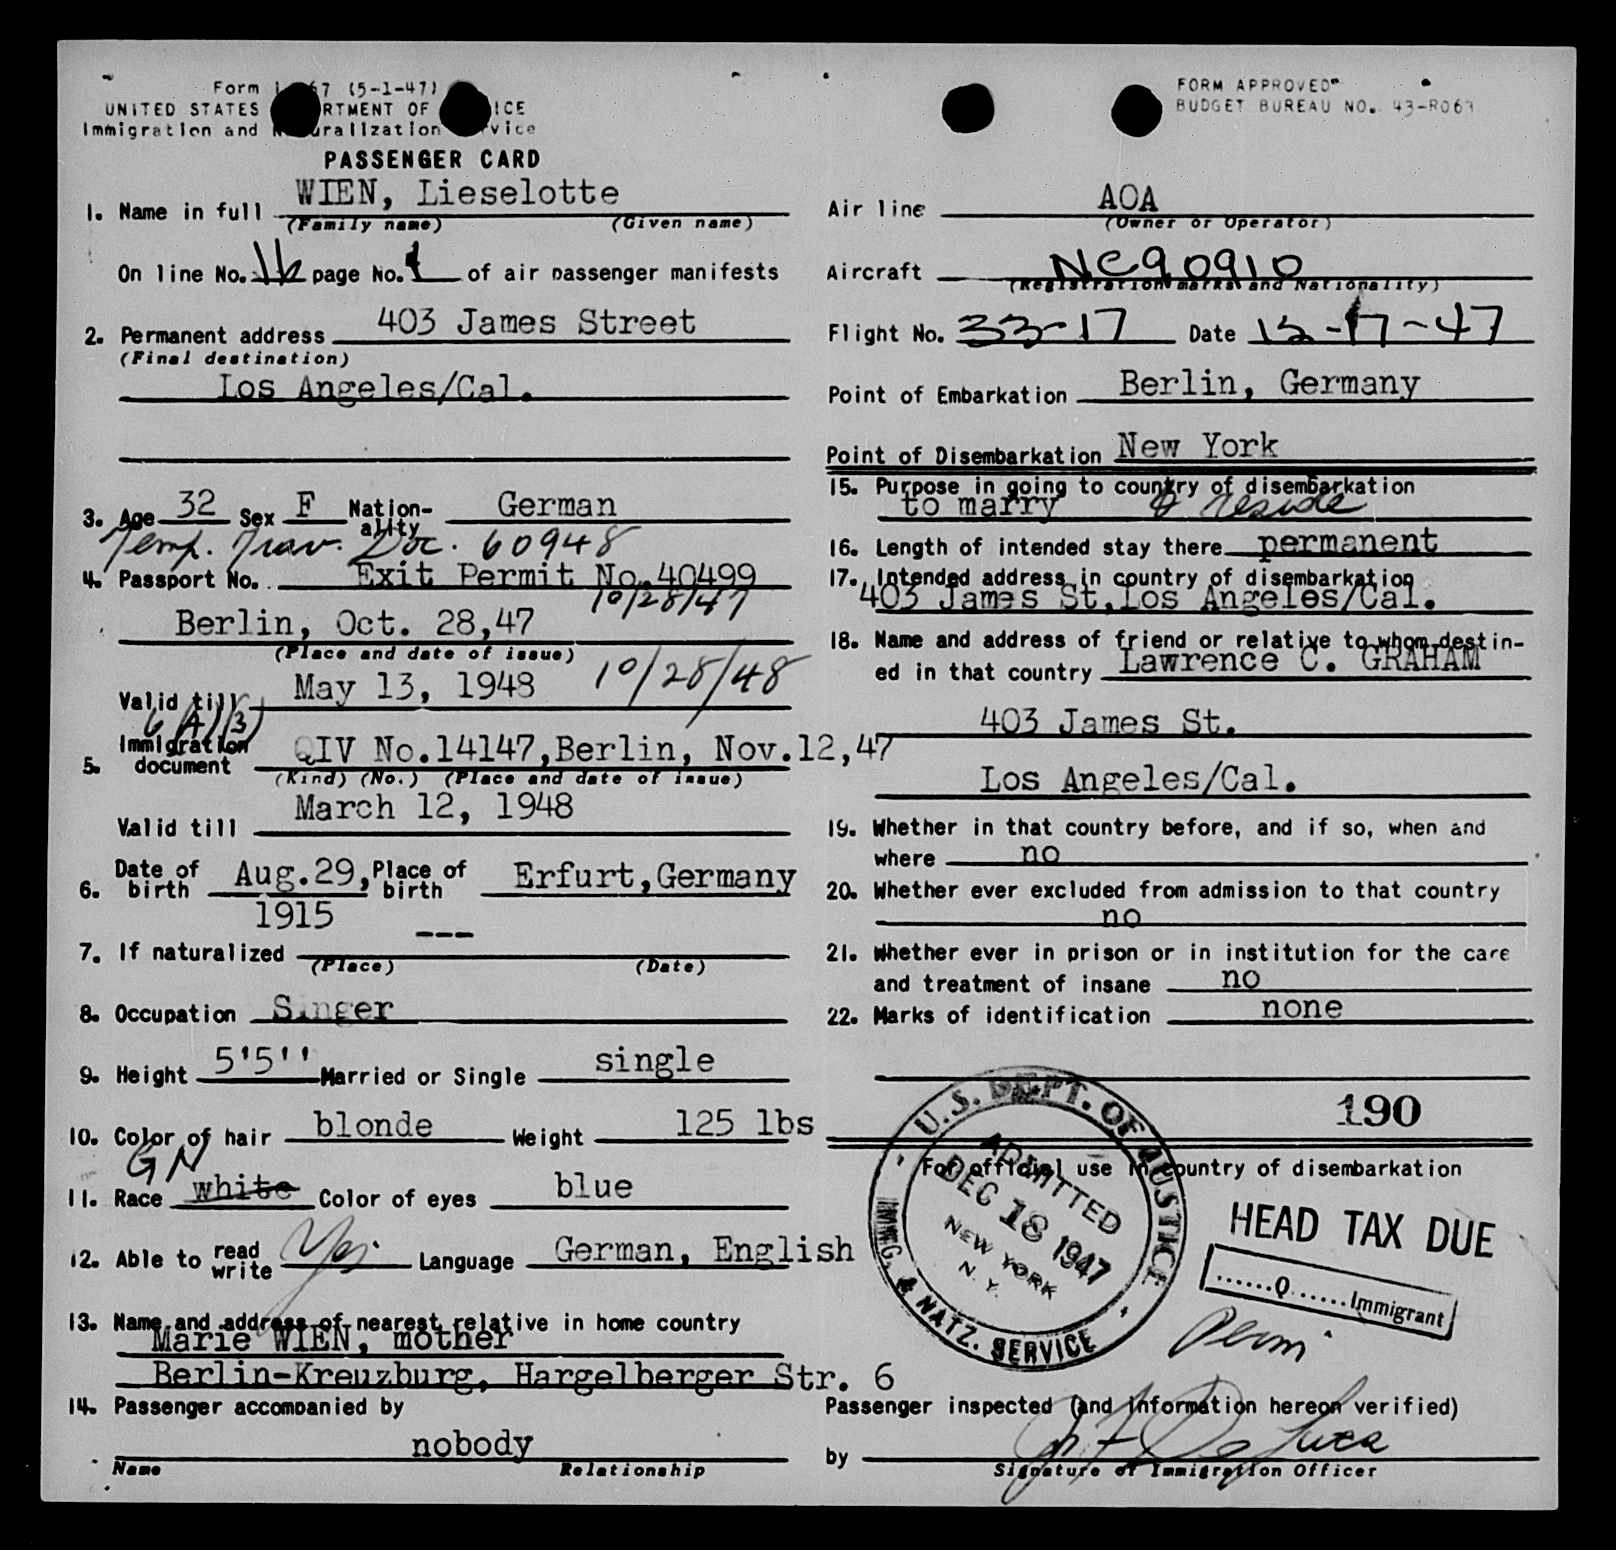 Form I 67 (5-1-47)
UNITED STATES RTMENT OF ICE
Immigration and N uralization rvice
PASSENGER CARD
1. Name in full WIEN, Lieselotte
(Family name) (Given name)
On line No. 16 page No. 1 of air passenger manifests
2. Permanent address 403 James Street
(Final destination)
Los Angeles/Cal.
3. Age 32 Sex F Nation-ality German
Temp. Trav. Doc. 60948
4. Passport No. Exit Permit No.40499
10/28/47
Berlin, Oct. 28,47
(Place and date of issue)
Valid till May 13, 1948 10/28/48
6(A)(3)
5. Immigration document QIV No.14147,Berlin, Nov.12,47
(Kind) (No.) (Place and date of issue)
March 12, 1948
Valid till
6. Date of birth Aug.29, 1915 Place of birth Erfurt,Germany
7. If naturalized ---
(Place) (Date)
8. Occupation Singer
9. Height 5'5'' Married or Single single
10. Color of hair blonde Weight 125 lbs
GN
11. Race white Color of eyes blue
12. Able to read write Yes Language German, English
13. Name and address of nearest relative in home country
Marie WIEN, mother
Berlin-Kreuzburg, Hargelberger Str. 6
14. Passenger accompanied by
nobody
Name Relationship
FORM APPROVED
BUDGET BUREAU NO. 43-R063
Air line AOA
(Owner or Operator)
Aircraft NC90910
(Registration marks and Nationality)
Flight No. 33-17 Date 12-17-47
Point of Embarkation Berlin, Germany
Point of Disembarkation New York
15. Purpose in going to country of disembarkation
to marry & reside
16. Length of intended stay there permanent
17. Intended address in country of disembarkation
403 James St,Los Angeles/Cal.
18. Name and address of friend or relative to whom destin-
ed in that country Lawrence C. GRAHAM
403 James St.
Los Angeles/Cal.
19. Whether in that country before, and if so, when and
where no
20. Whether ever excluded from admission to that country
no
21. Whether ever in prison or in institution for the care
and treatment of insane no
22. Marks of identification none
190
For official use in country of disembarkation
U.S. DEPT. OF JUSTICE
ADMITTED
DEC 18 1947
NEW YORK
N. Y.
IMMG. & NATZ. SERVICE
HEAD TAX DUE
......Q......Immigrant
Perm
Passenger inspected (and information hereon verified)
by De Luca
Signature of Immigration Officer